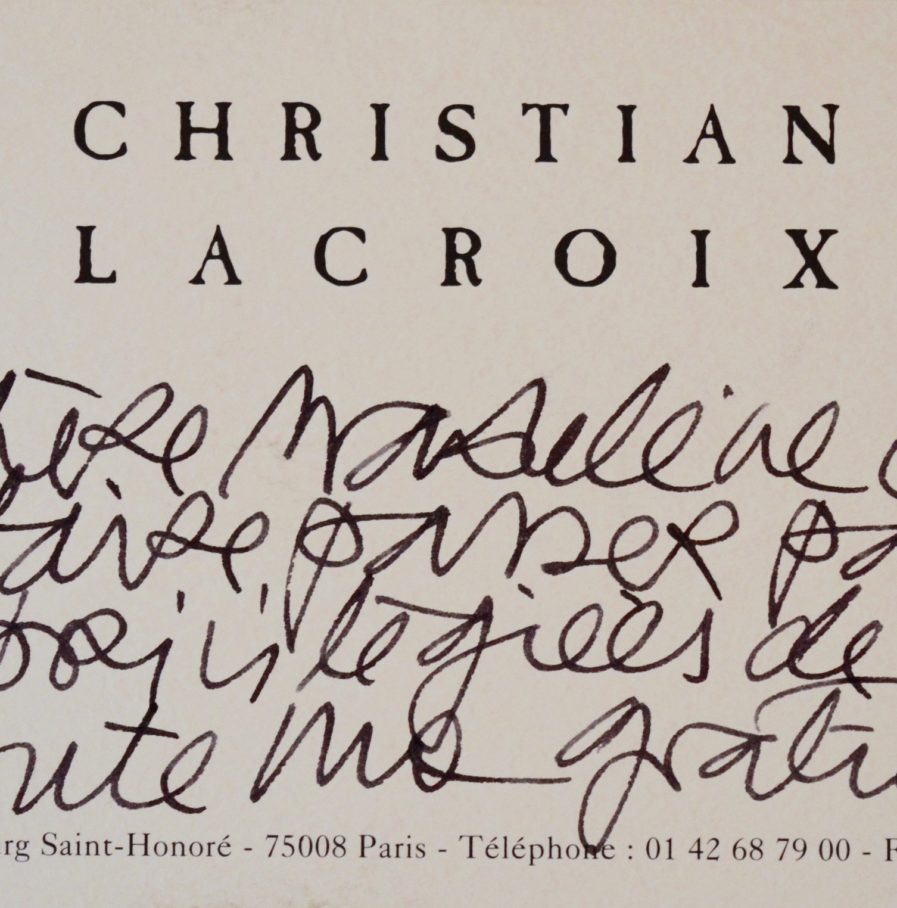 CHRISTIAN
LACROIX
faire passer pa
privilégiées de
oute ma grati
rg Saint-Honoré - 75008 Paris - Téléphone : 01 42 68 79 00 - F